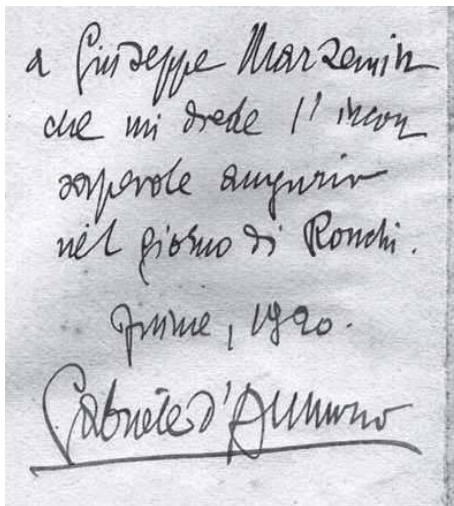 a Giuseppe Marzemin
che mi diede l'incon
sapevole augurio
nel giorno di Ronchi.
Fiume, 1920.
Gabriele d'Annunzio